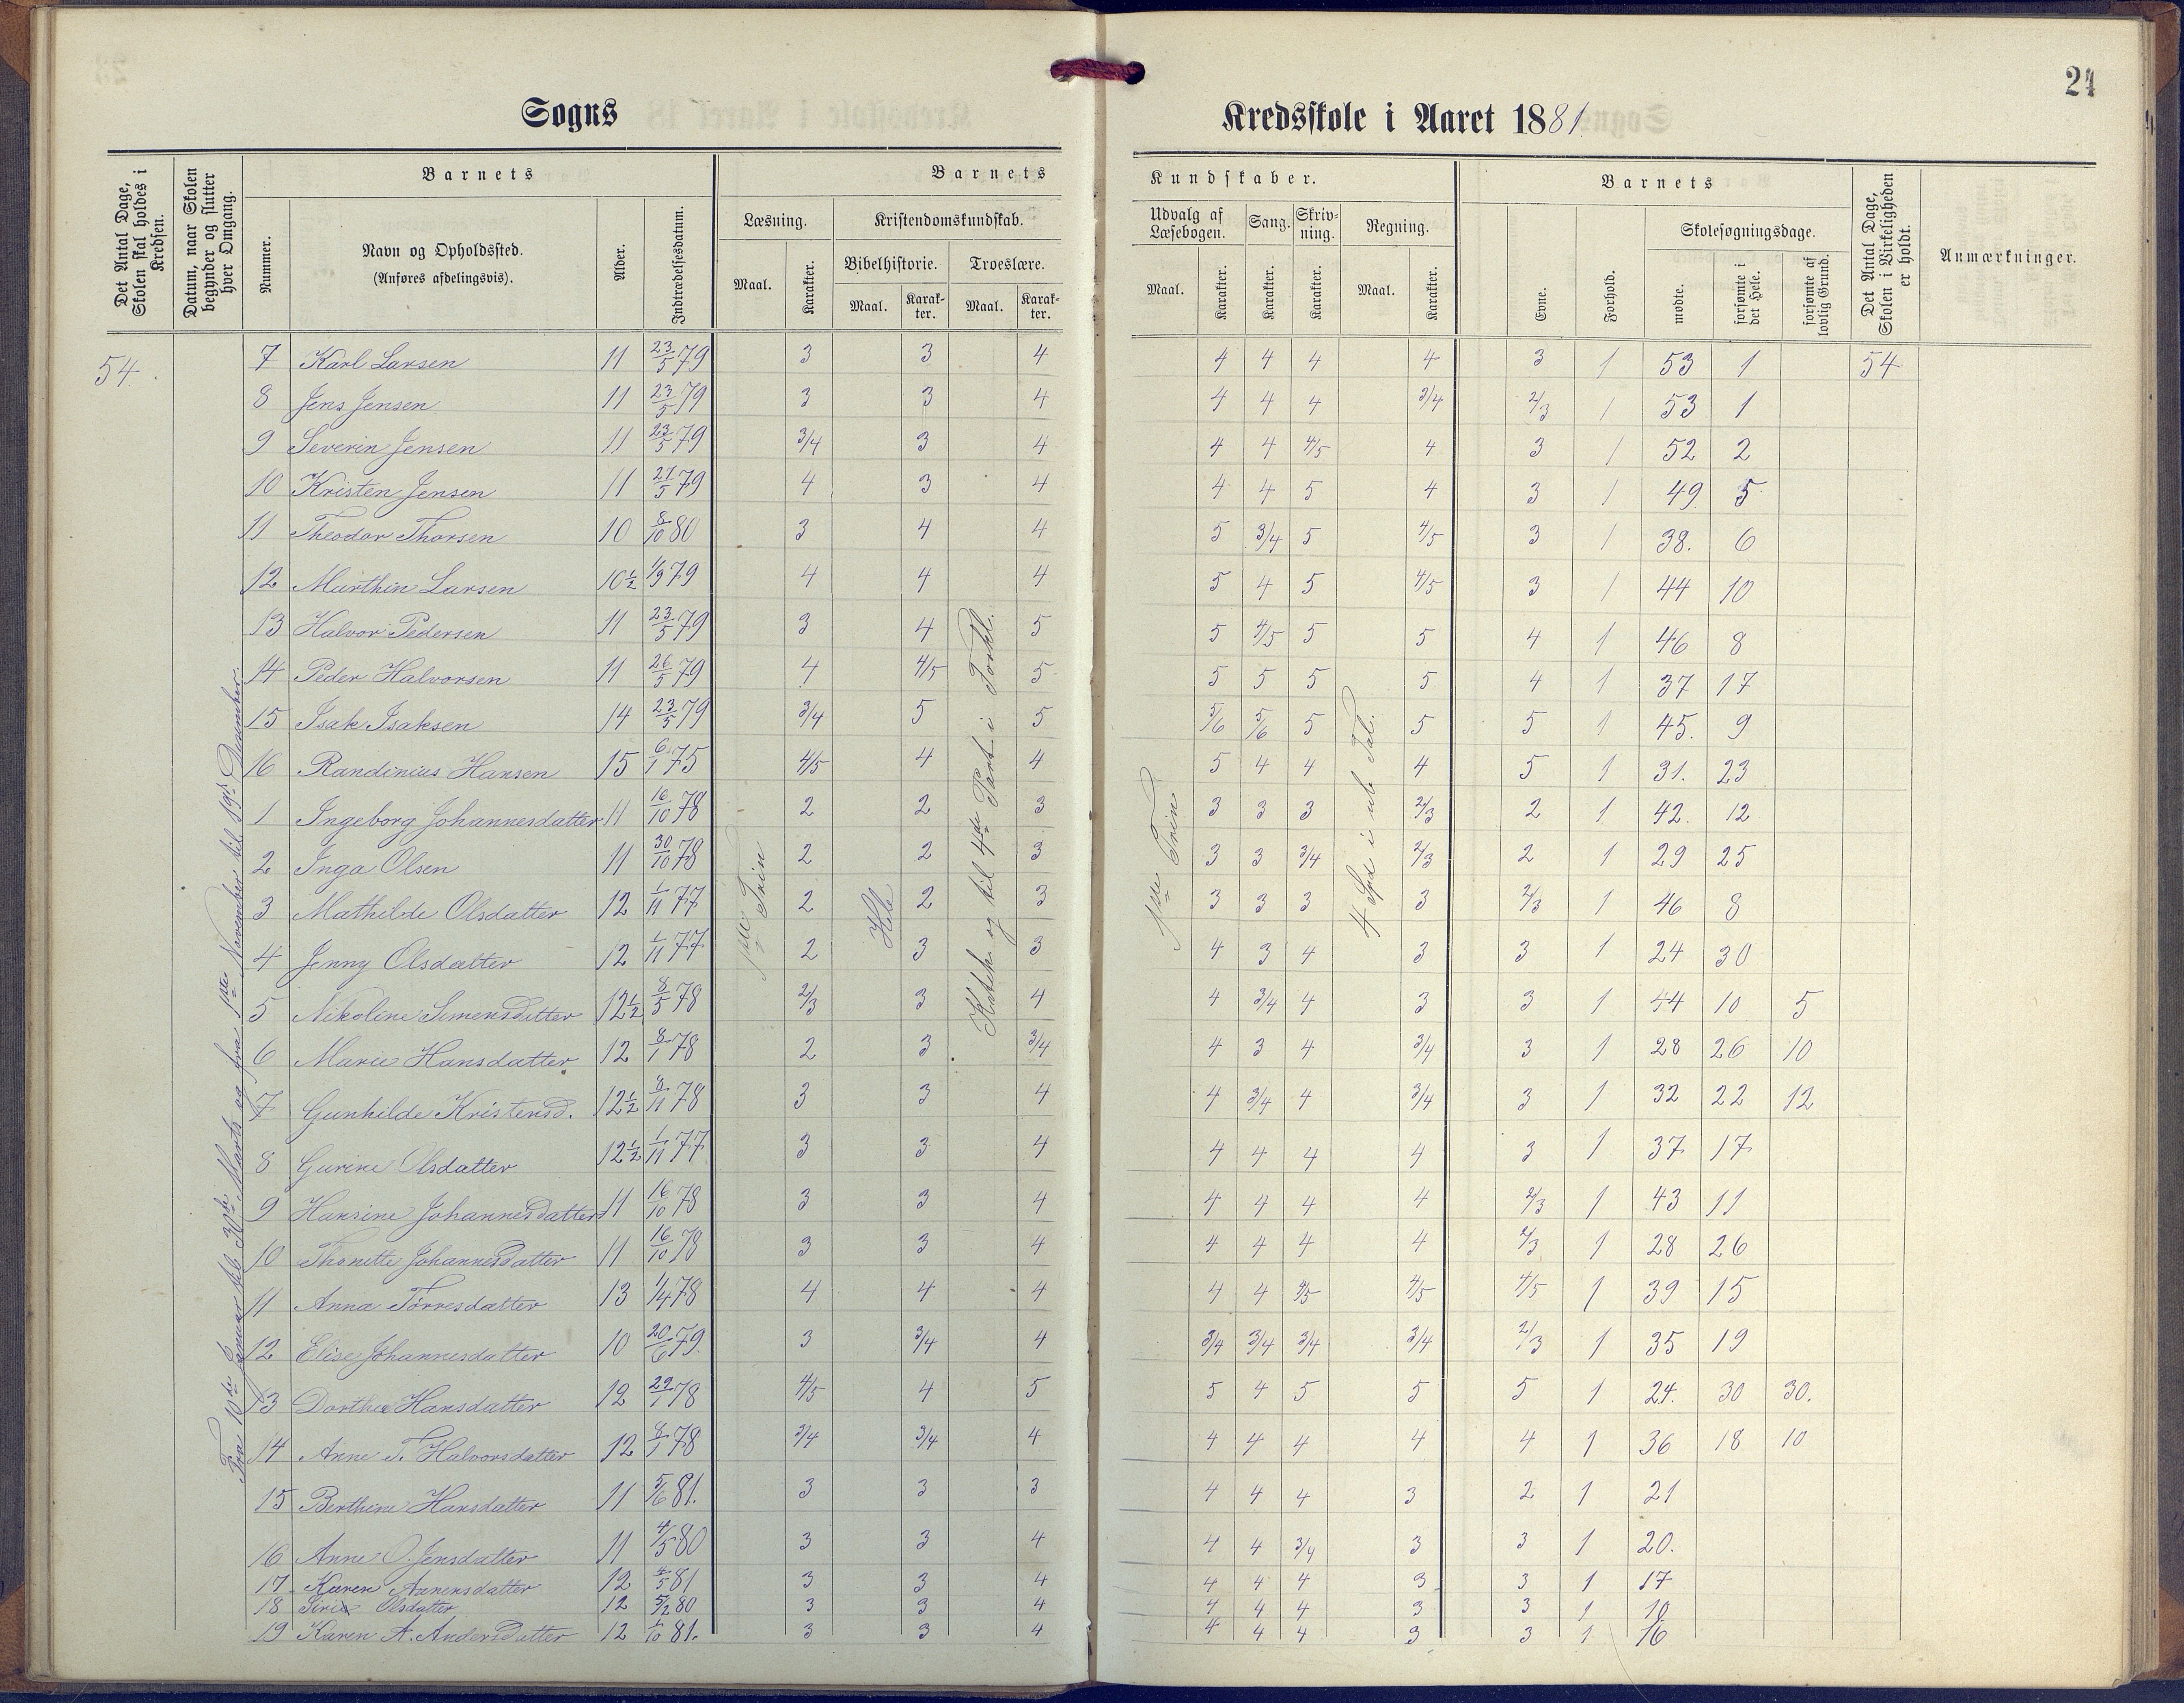 24
Sogns Kredsskole i Aaret 1881.
Det Antal Dage, Skolen skal holdes i Kredsen.
Datum, naar Skolen begynder og slutter hver Omgang.
Barnets
Nummer.
Navn og Opholdssted. (Anføres afdelingsvis).
Alder.
Indtrædelsesdatum.
Barnets Kundskaber.
Læsning.
Maal. Karakter.
Kristendomskundskab.
Bibelhistorie. Troeslære.
Maal. Karakter. Maal. Karakter.
Udvalg af Læsebogen. Sang. Skrivning. Regning.
Maal. Karakter. Karakter. Karakter. Maal. Karakter.
Barnets
Evne. Forhold.
Skolesøgningsdage.
mødte. forsømte i det Hele. forsømte af lovlig Grund.
Det Antal Dage, Skolen i Virkeligheden er holdt.
Anmærkninger.
54
Fra 10de Januar til 30te Marts og fra 1ste November til 19de December.
1ste Trin
Hele
Katek. og til 4de Part i Forkl.
1ste Trin
4 Spd i ub Tal.
7 Karl Larsen 11 23/5 79 3 3 4 4 4 4 4 3 1 53 1 54
8 Jens Jensen 11 23/5 79 3 3 4 4 4 4 3/4 2/3 1 53 1
9 Severin Jensen 11 23/5 79 3/4 3 4 4 4 4/5 4 3 1 52 2
10 Kristen Jensen 11 21/5 79 4 3 4 4 4 5 4 3 1 49 5
11 Theodor Thorsen 10 8/10 80 3 4 4 5 3/4 5 4/5 3 1 38. 6
12 Marthin Larsen 10½ 1/9 79 4 4 4 5 4 5 4/5 3 1 44 10
13 Halvor Pedersen 11 23/5 79 3 4 5 5 4/5 5 5 4 1 46 8
14 Peder Halvorsen 11 26/5 79 4 4/5 5 5 5 5 5 4 1 37 17
15 Isak Isaksen 14 23/5 79 3/4 5 5 5/6 5/6 5 5 5 1 45. 9
16 Randinius Hansen 15 6/1 75 4/5 4 4 5 4 4 4 5 1 31. 23
1 Ingeborg Johannesdatter 11 16/10 78 2 2 3 3 3 3 2/3 2 1 42. 12
2 Inga Olsen 11 30/10 78 2 2 3 3 3 3/4 2/3 2 1 29 25
3 Mathilde Olsdatter 12 1/11 77 2 2 3 3 3 3 3 2/3 1 46 8
4 Jenny Olsdatter 12 1/11 77 2 3 3 4 3 4 3 3 1 24 30
5 Nikoline Simensdatter 12½ 8/5 78 2/3 3 4 4 3/4 4 3 3 1 44 10 5
6 Marie Hansdatter 12 8/1 78 2 3 3/4 4 3 4 3/4 3 1 28 26 10
7 Gunhilde Kristensd. 12½ 8/11 78 3 3 4 4 3/4 4 3/4 3 1 32 22 12
8 Gurine Olsdatter 12½ 1/11 77 3 3 4 4 4 4 4 3 1 37 17
9 Hansine Johannesdatter 11 16/10 78 3 3 4 4 4 4 4 2/3 1 43 11
10 Thonette Johannesdatter 11 16/10 78 3 3 4 4 4 4 4 2/3 1 28 26
11 Anna Tørresdatter 13 1/4 78 4 4 4 4 4 4/5 4/5 1 39 15
12 Elise Johannesdatter 10 20/6 79. 3 3/4 4 3/4 3/4 3/4 3/4 2/3 1 35 19
13 Dorthea Hansdatter 12 29/1 78 4/5 4 5 5 4 5 5 5 1 24. 30 30.
14 Anne T. Halvorsdatter 12 8/1 78 3/4 3/4 4 4 4 4 4 4 1 36 18 10
15 Berthine Hansdatter 11 5/6 81. 3 3 3 4 4 4 3 2 1 21
16 Anne O. Jensdatter 11 4/5 80 3 3 4 4 4 3/4 3 3 1 20.
17 Karen Aanensdatter 12 4/5 81 3 3 4 4 4 4 3 3 1 17
18 Olsdatter 12 5/2 80 3 3 4 4 4 4 3 3 1 10
19 Karen A. Andersdatter 12 1/10 81. 3 3 4 4 4 4 3 3 1 16